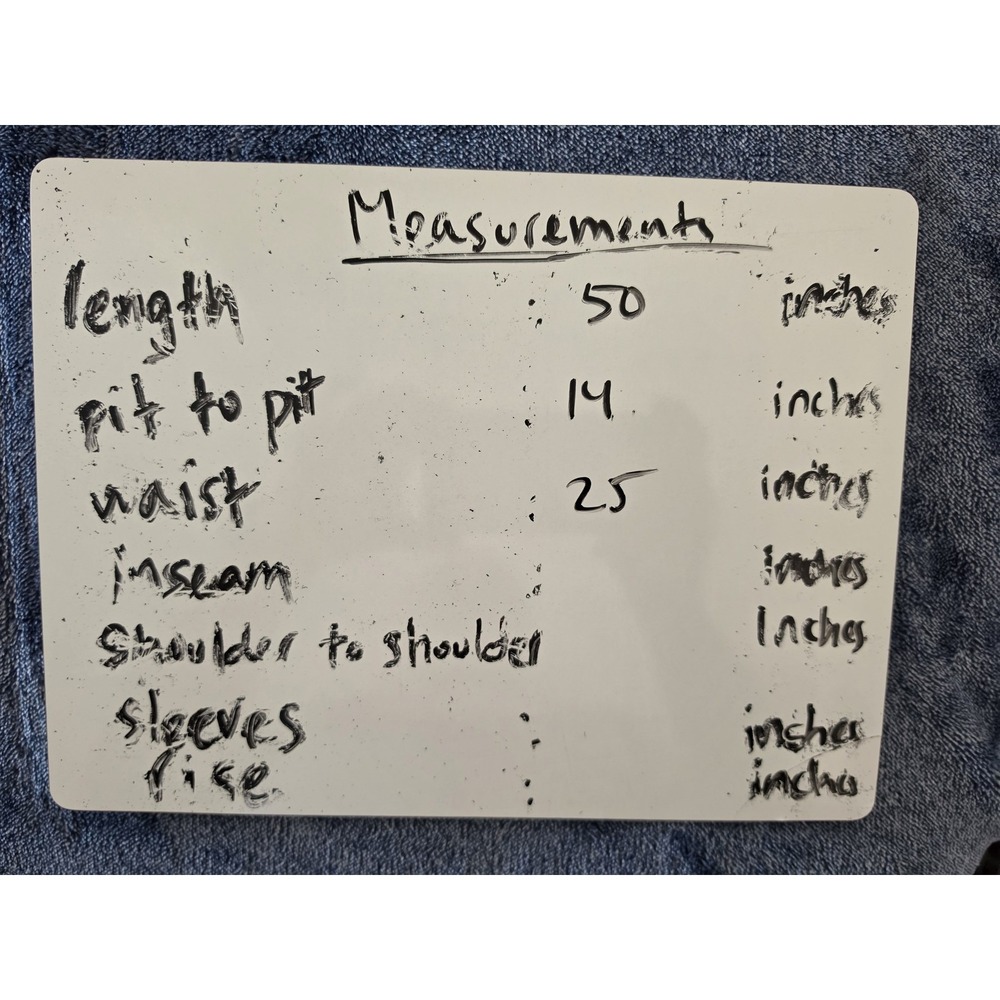 Measurements
length : 50 inches
pit to pit : 14 inches
waist : 25 inches
inseam : inches
shoulder to shoulder Inches
sleeves : inches
rise : inches